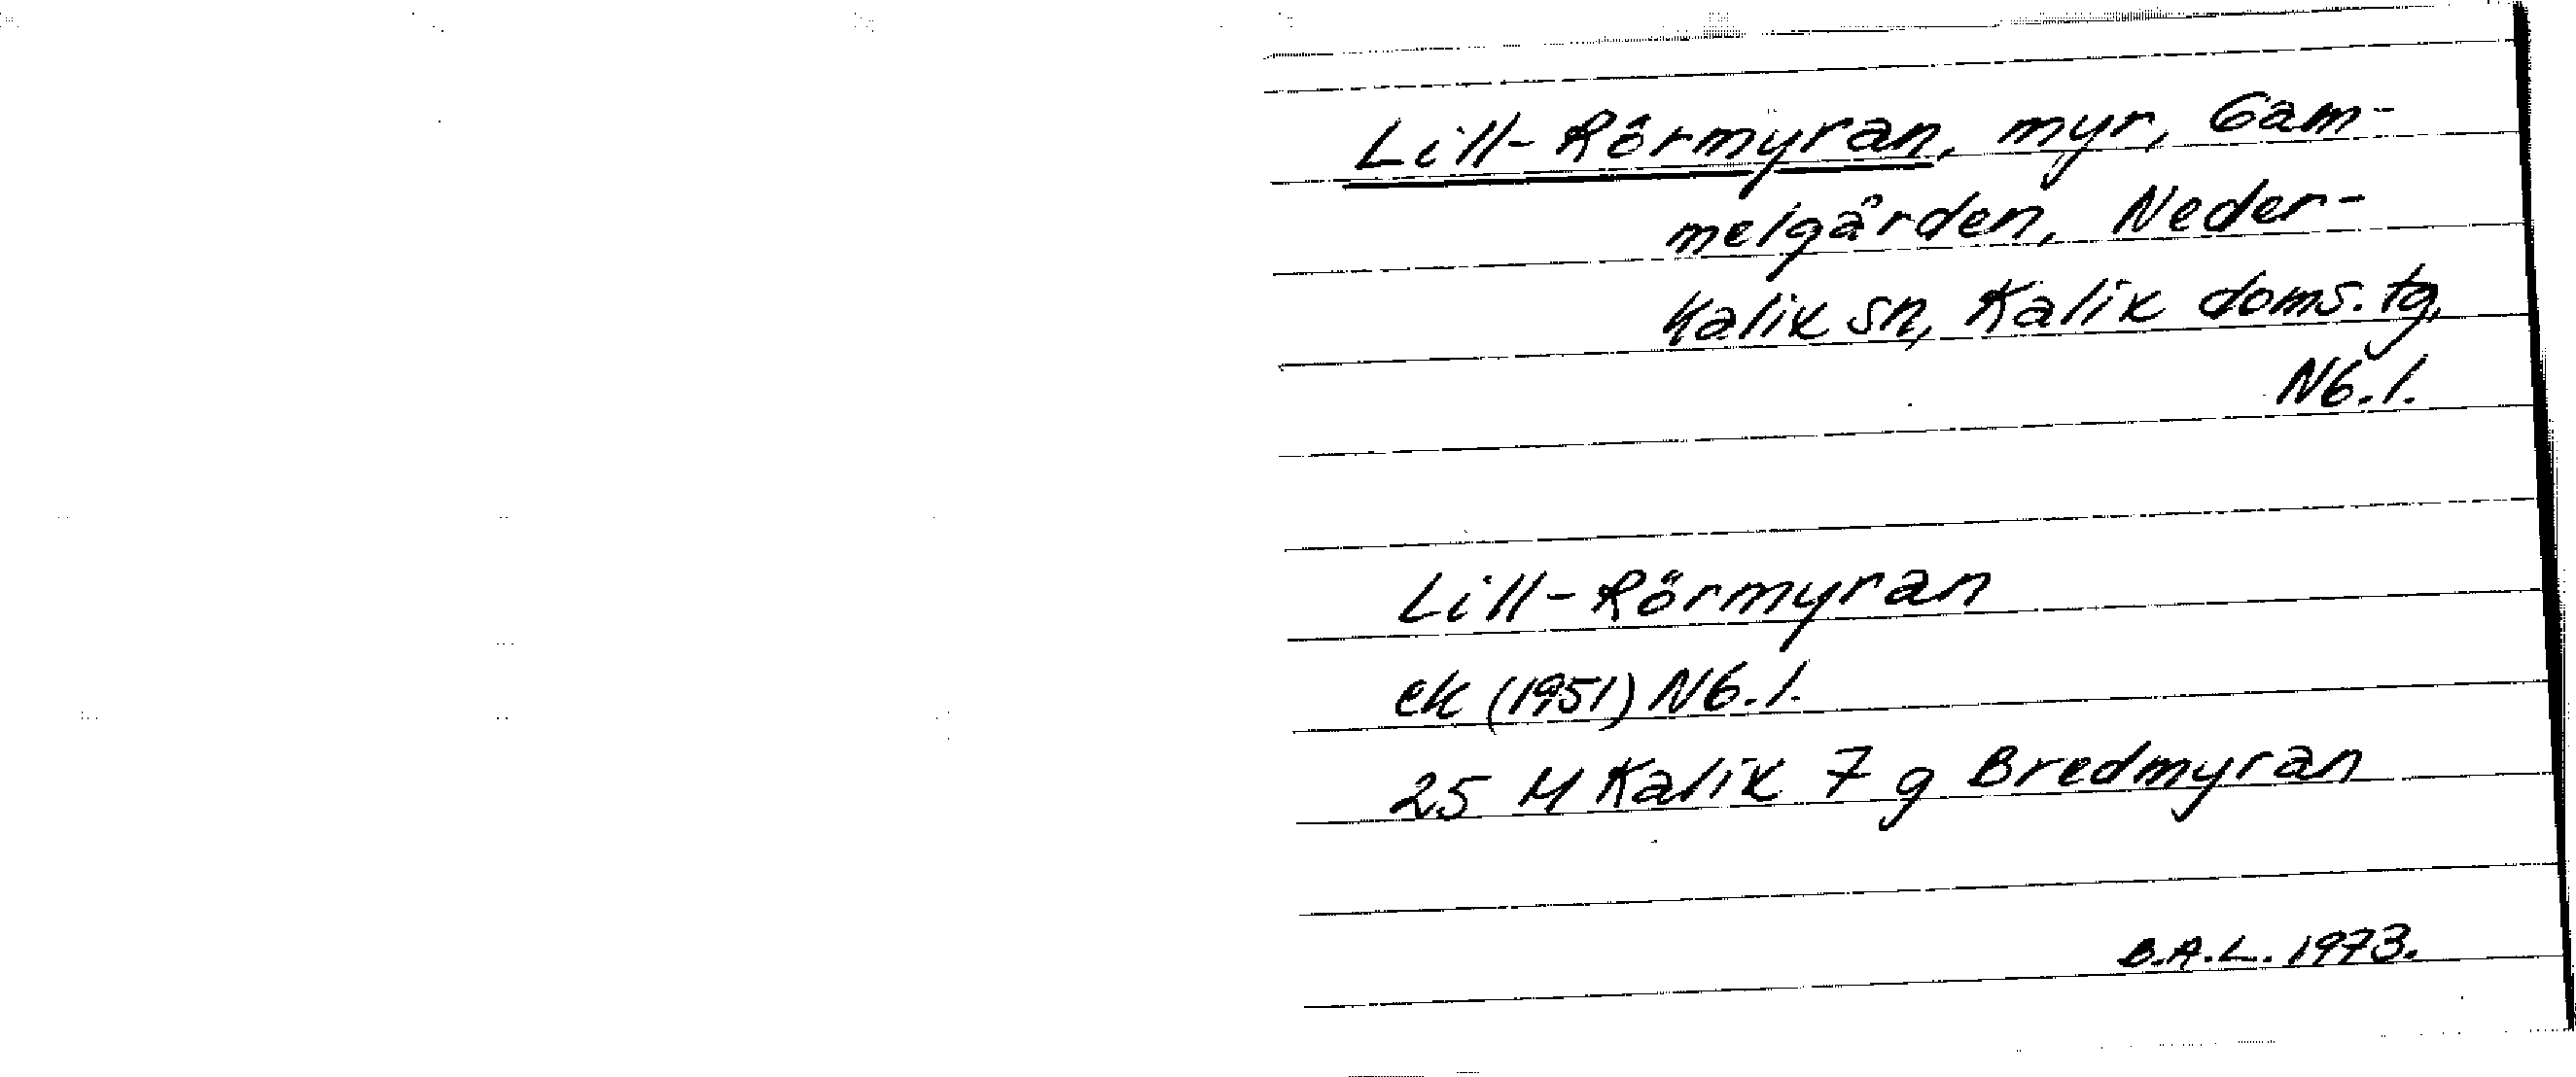 Lill-Rörmyran, myr, Gam-
melgården, Neder-
Kalix sn, Kalix doms. tg,
Nb.l.
Lill-Rörmyran
ek (1951) Nb.l.
25 M Kalix 7 g Bredmyran
B.A.L. 1973.